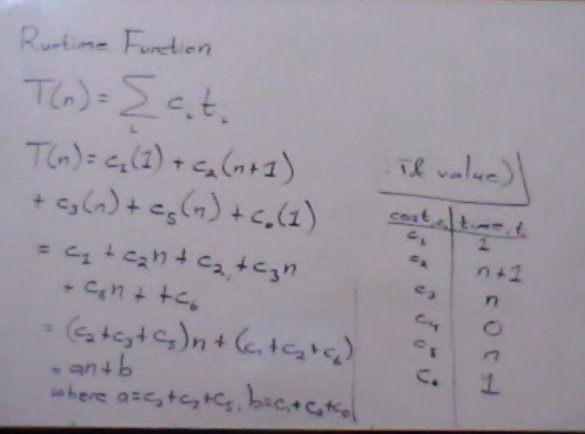 Runtime Function
T(n) = ∑ᵢ cᵢ tᵢ
T(n) = c₁(1) + c₂(n+1)
+ c₃(n) + c₅(n) + c₆(1)
= c₁ + c₂n + c₂ + c₃n
+ c₅n + + c₆
= (c₂+c₃+c₅)n + (c₁+c₂+c₆)
= an+b
where a=c₂+c₃+c₅, b=c₁+c₂+c₆
value)
cost, cᵢ time, tᵢ
c₁ 1
c₂ n+1
c₃ n
c₄ 0
c₅ n
c₆ 1